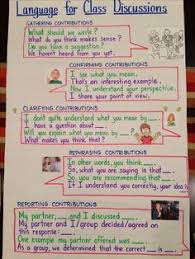 Language for Class Discussions
GATHERING CONTRIBUTIONS
What should we write?
What do you think makes sense?
Do you have a suggestion?
We haven't heard from you yet.
CONFIRMING CONTRIBUTIONS
I see what you mean.
That's an interesting example.
Now I understand your perspective.
I share your point of view.
CLARIFYING CONTRIBUTIONS
I don't quite understand what you mean by
I have a question about
Will you explain what you mean by ?
What makes you think that?
REPHRASING CONTRIBUTIONS
In other words, you think
So, what you are saying is that
So, you recommend that
If I understand you correctly, your idea is
REPORTING CONTRIBUTIONS
My partner, and I discussed
My partner and I/group decided/agreed on
this response:
One example my partner offered was
As a group, we determined that the correct is